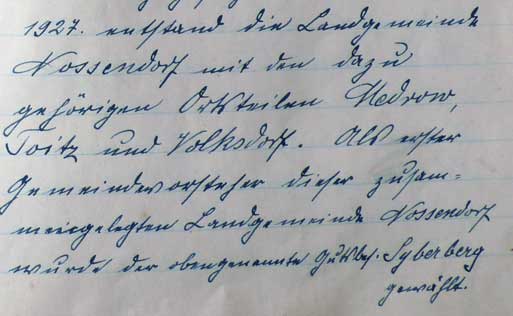 1927. entstand die Landgemeinde
Nossendorf mit den dazu
gehörigen Ortsteilen Medrow,
Toitz und Volksdorf. Als erster
Gemeindevorsteher dieser zusam=
mengelegten Landgemeinde Nossendorf
wurde der obengenannte Gutsbes. Syberberg
gewählt.